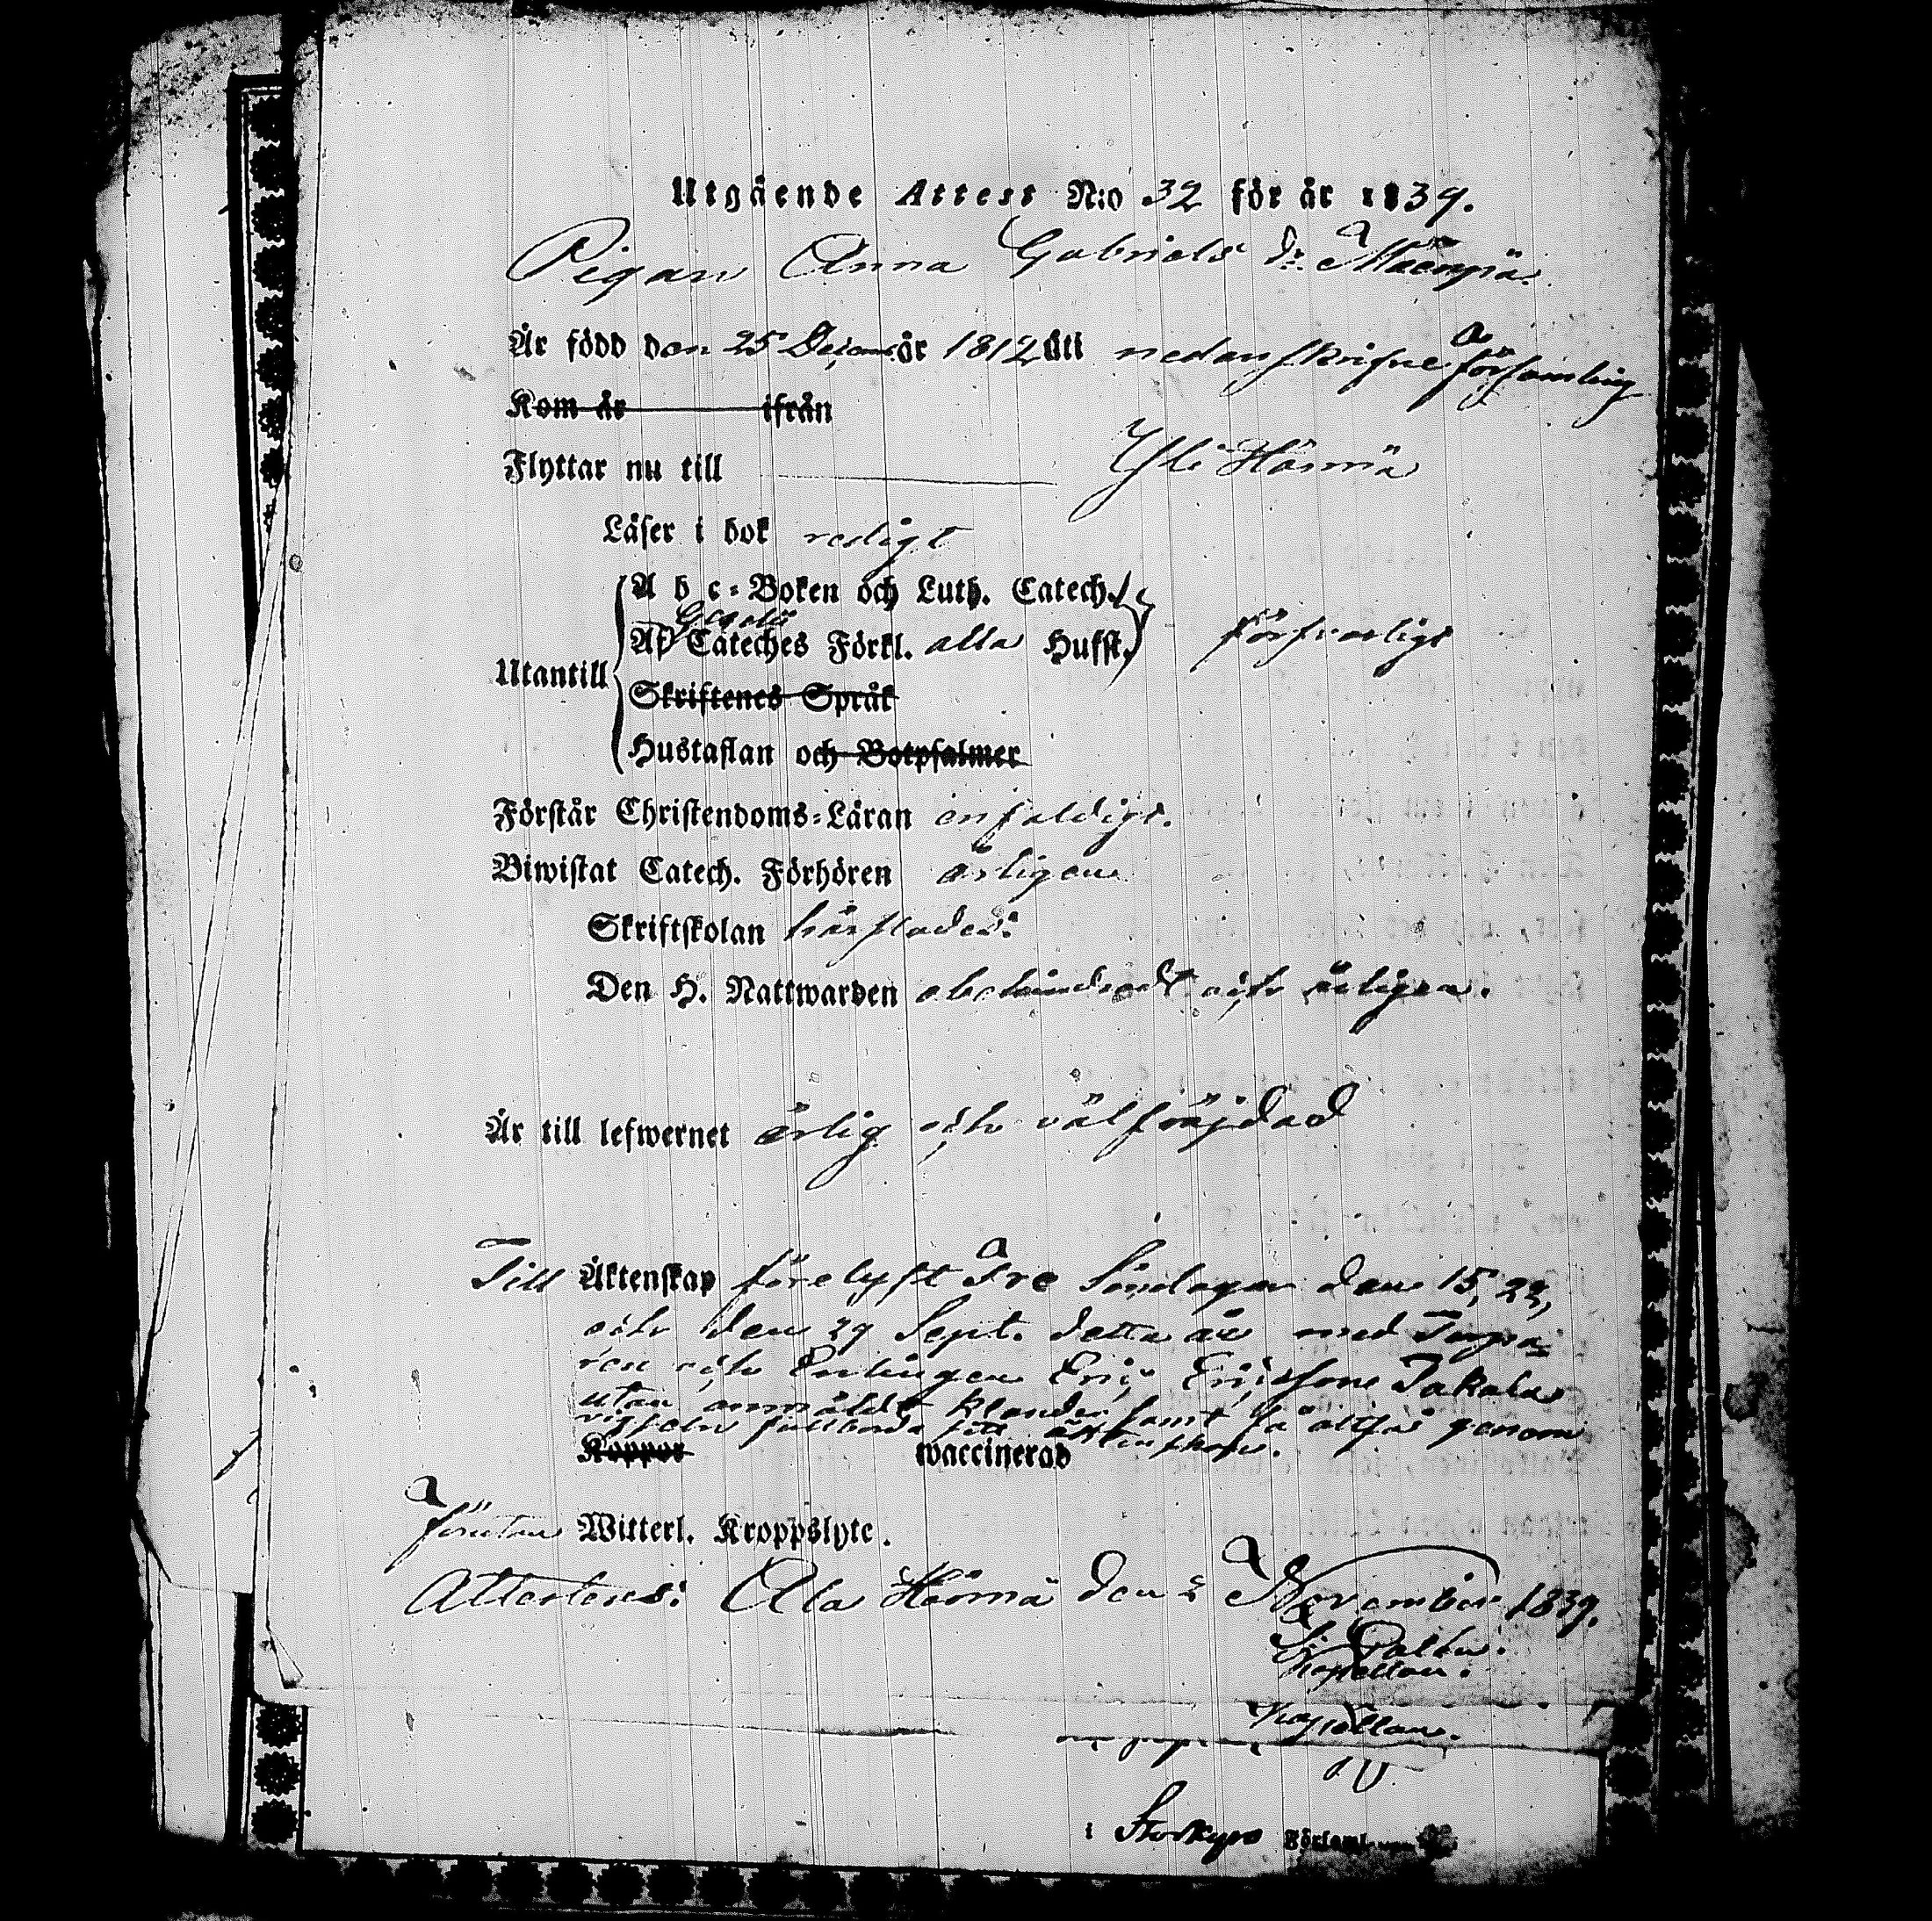 Utgående Attest N:o 32 för år 1839.
Pigan Anna Gabriels dr. Mäenpää.
Är född den 25 Decem år 1812 uti nedanskrifne församling
Kom år ifrån
Flyttar nu till Yli Härmä
Läser i bok redigt
A b c-Boken och Luth. Catech.
Af Cateches Förkl. alla Hufst. försvarligt
Utantill
Skriftenes Språk
Hustaflan och Botpsalmer
Förstår Christendoms-Läran enfaldigt.
Biwistat Catech. Förhören årligen
Skriftskolan härstädes.
Den H. Nattwarden obehindradt och årligen.
Är till lefwernet ärlig och välfräjdad
Till Äktenskap förelyst Tre Söndagar den 15, 22,
och den 29 Sept. detta år med Torpa
ren och Enklingen Eric Ericsson Jakola
utan anmäldt klander samt få altså genom
vigseln fullborda sitt äktenskap.
Koppor waccinerad
förutan Witterl. Kroppslyte.
Attesteras: Ala Härmä den 2 November 1839.
Kapellan.
Kapellan.
i Storkyro Församl